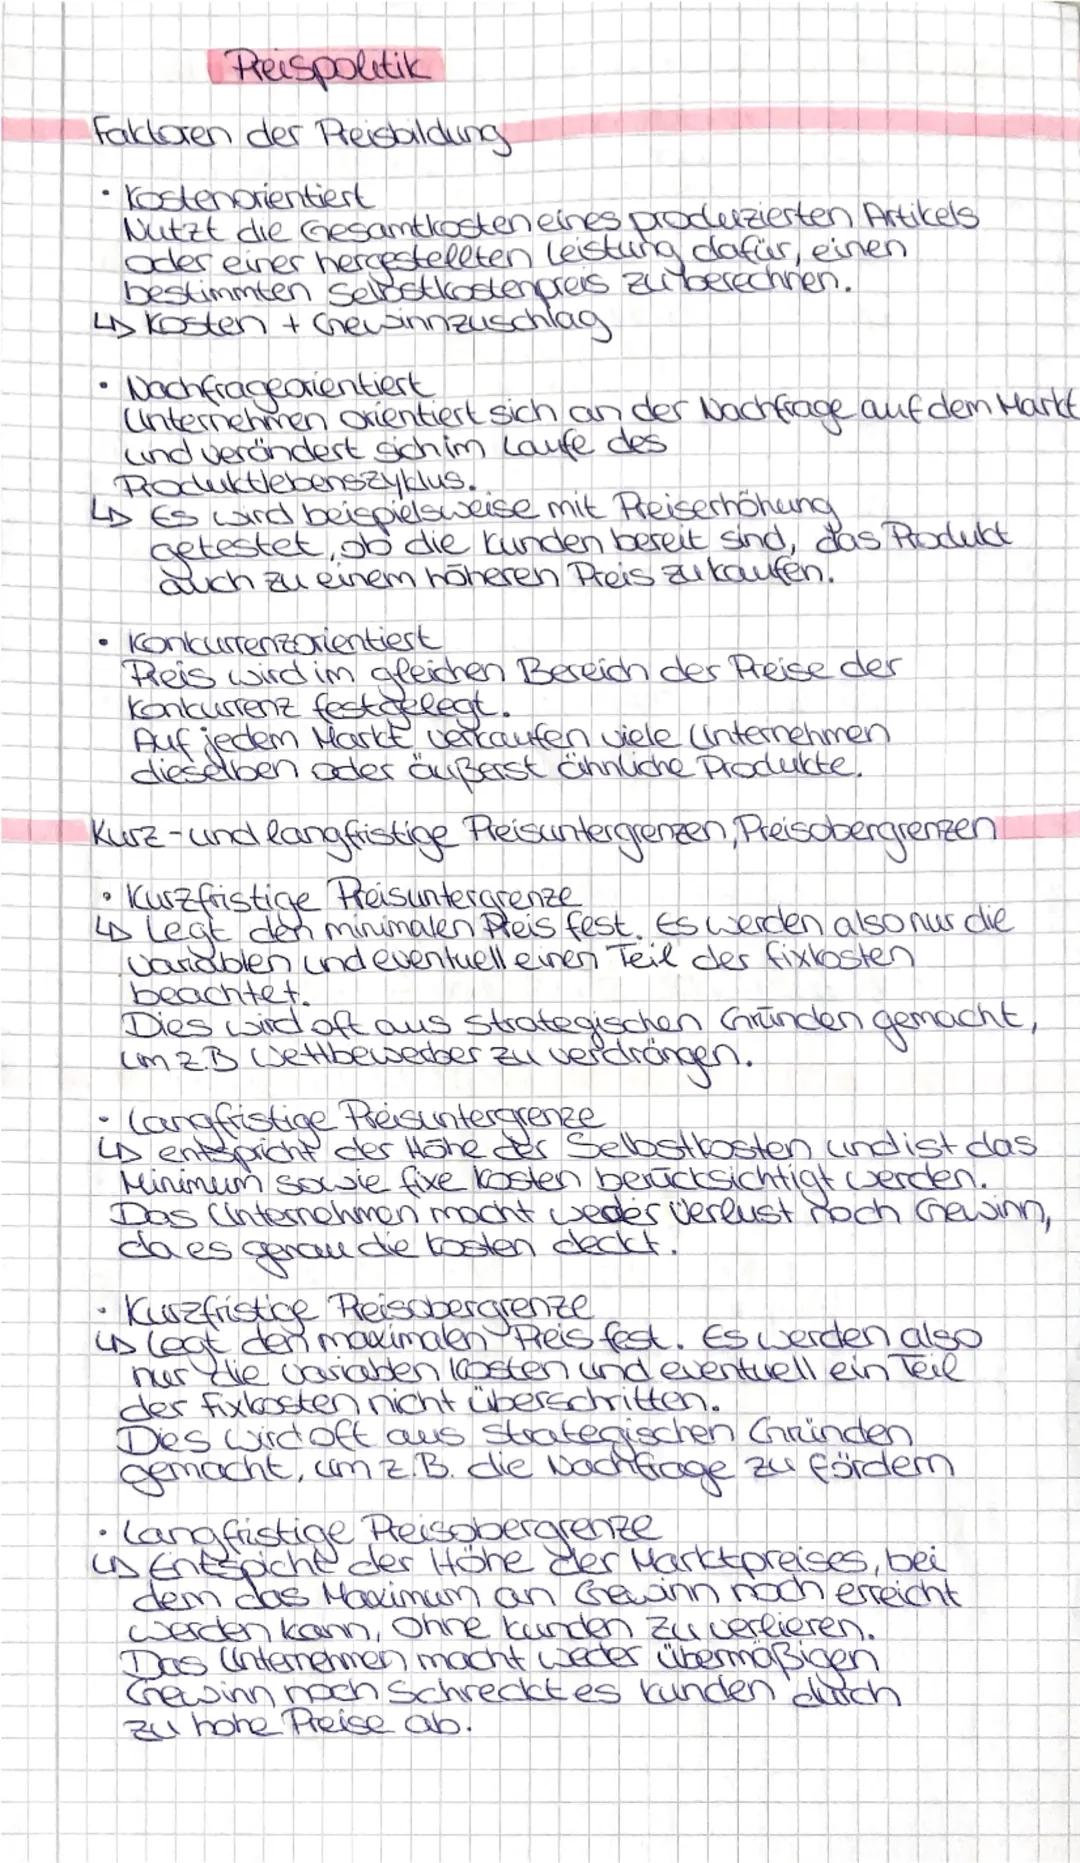 Preispolitik
Faktoren der Preisbildung
• Kostenorientiert
Nutzt die Gesamtkosten eines produzierten Artikels
oder einer hergestellten Leistung dafür, einen
bestimmten Selbstkostenpreis zu berechnen.
↳ Kosten + Gewinnzuschlag
• Nachfrageorientiert
Unternehmen orientiert sich an der Nachfrage auf dem Markt
und verändert sich im Laufe des
Produktlebenszyklus.
↳ Es wird beispielsweise mit Preiserhöhung
getestet, ob die Kunden bereit sind, das Produkt
auch zu einem höheren Preis zu kaufen.
• Konkurrenzorientiert
Preis wird im gleichen Bereich der Preise der
Konkurrenz festgelegt.
Auf jedem Markt verkaufen viele Unternehmen
dieselben oder äußerst ähnliche Produkte.
Kurz- und langfristige Preisuntergrenzen, Preisobergrenzen
• Kurzfristige Preisuntergrenze
↳ Legt den minimalen Preis fest. Es werden also nur die
variablen und eventuell einen Teil der Fixkosten
beachtet.
Dies wird oft aus strategischen Gründen gemacht,
um z.B Wettbewerber zu verdrängen.
• Langfristige Preisuntergrenze
↳ entspricht der Höhe der Selbstkosten und ist das
Minimum sowie fixe Kosten berücksichtigt werden.
Das Unternehmen macht weder Verlust noch Gewinn,
da es genau die Kosten deckt.
• Kurzfristige Preisobergrenze
↳ Legt den maximalen Preis fest. Es werden also
nur die variablen Kosten und eventuell ein Teil
der Fixkosten nicht überschritten.
Dies wird oft aus strategischen Gründen
gemacht, um z.B. die Nachfrage zu fördern
• Langfristige Preisobergrenze
↳ Entspicht der Höhe der Marktpreises, bei
dem das Maximum an Gewinn noch erreicht
werden kann, Ohne Kunden zu verlieren.
Das Unternehmen macht weder übermäßigen
Gewinn noch schreckt es Kunden durch
zu hohe Preise ab.